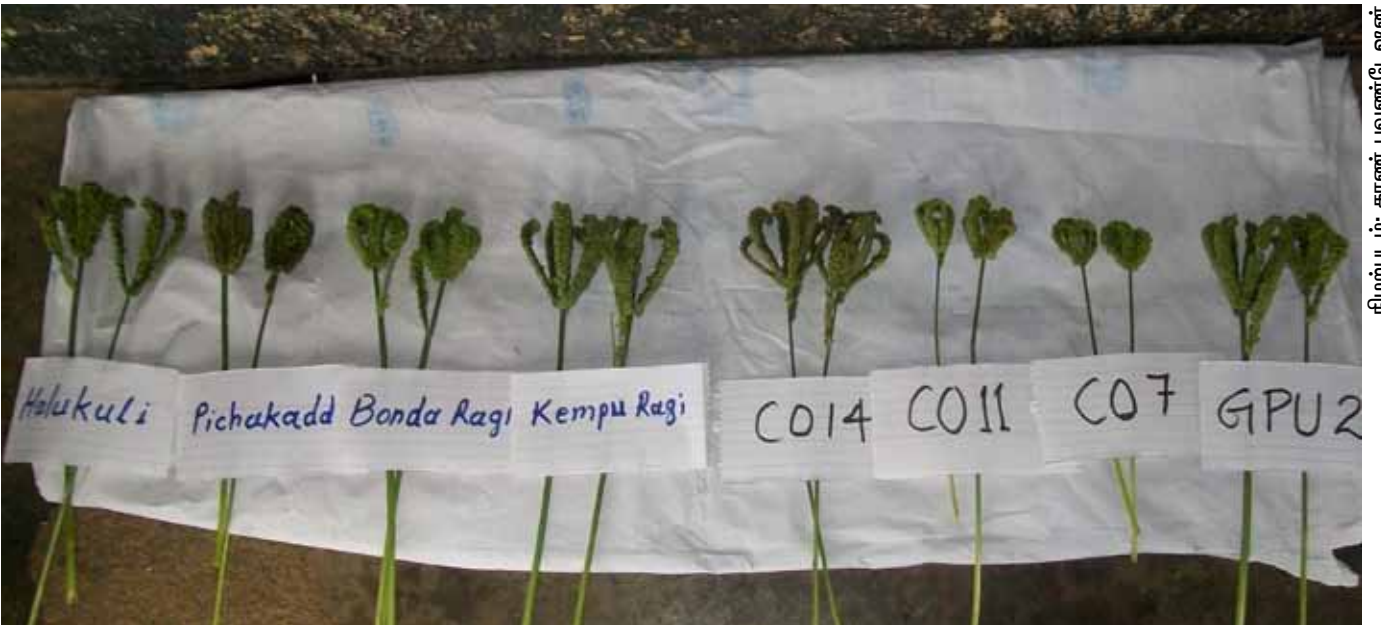 Halukuli
Pichakadd
Bonda Ragi
Kempu Ragi
CO14
CO11
CO7
GPU 2